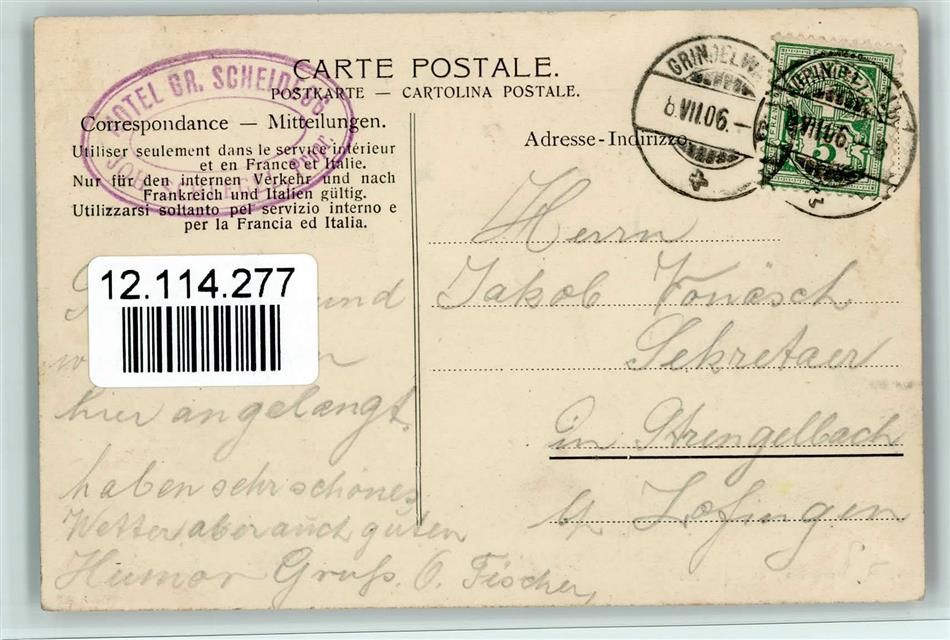 CARTE POSTALE.
POSTKARTE — CARTOLINA POSTALE.
HOTEL GR. SCHEIDEGG
Correspondance — Mitteilungen.
Utiliser seulement dans le service intérieur
et en France et Italie.
Nur für den internen Verkehr und nach
Frankreich und Italien gültig.
Utilizzarsi soltanto pel servizio interno e
per la Francia ed Italia.
Adresse-Indirizzo
GRINDELWA
8.VII.06.-6
5
VII.06
Herrn
Jakob Vonäsch
Sekretaer
in Strengelbach
bp Zofingen
12.114.277
und
hier angelangt,
haben sehr schönes
Wetter aber auch guten
Humor Gruß. O. Fischer,